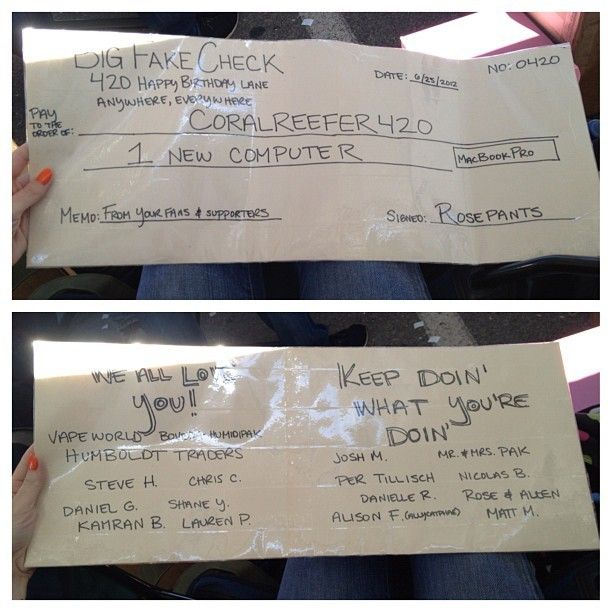 BIG FAKE CHECK
420 HAPPY BIRTHDAY LANE
ANYWHERE, EVERYWHERE
DATE: 6/25/2012
NO: 0420
PAY TO THE ORDER OF: CORALREEFER420
1 NEW COMPUTER MACBOOK PRO
MEMO: FROM YOUR FANS & SUPPORTERS
SIGNED: ROSEPANTS
WE ALL
YOU!
VAPEWORLD HUMIDIPAK
HUMBOLDT TRADERS
STEVE H. CHRIS C.
DANIEL G. SHANE Y.
KAMRAN B. LAUREN P.
KEEP DOIN'
WHAT YOU'RE
DOIN'
JOSH M. MR. & MRS. PAK
PER TILLISCH NICOLAS B.
DANIELLE R. ROSE & ALLEN
ALISON F. MATT M.